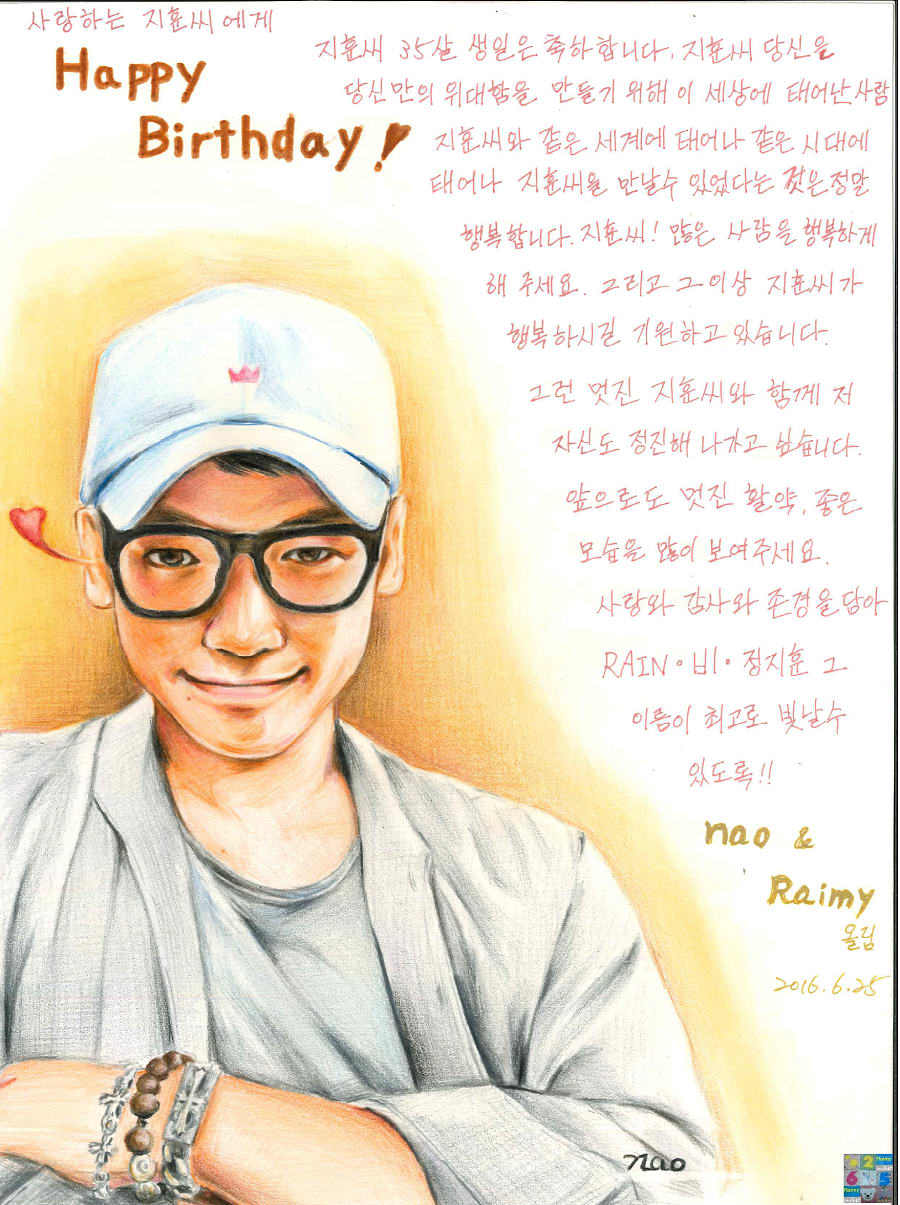 사랑하는 지훈씨에게
Happy
Birthday!
지훈씨 35살 생일은 축하합니다. 지훈씨 당신을
당신만의 위대함을 만들기 위해 이 세상에 태어난 사람
지훈씨와 같은 세계에 태어나 같은 시대에
태어나 지훈씨을 만날수 있었다는 것은 정말
행복합니다. 지훈씨! 많은 사람을 행복하게
해 주세요. 그리고 그이상 지훈씨가
행복하시길 기원하고 있습니다.
그런 멋진 지훈씨와 함께 저
자신도 정진해 나가고 싶습니다.
앞으로도 멋진 활약, 좋은
모습을 많이 보여주세요.
사랑와 감사와 존경을 담아
RAIN・비・정지훈 그
이름이 최고로 빛날수
있도록!!
nao &
Raimy
올림
2016.6.25
nao